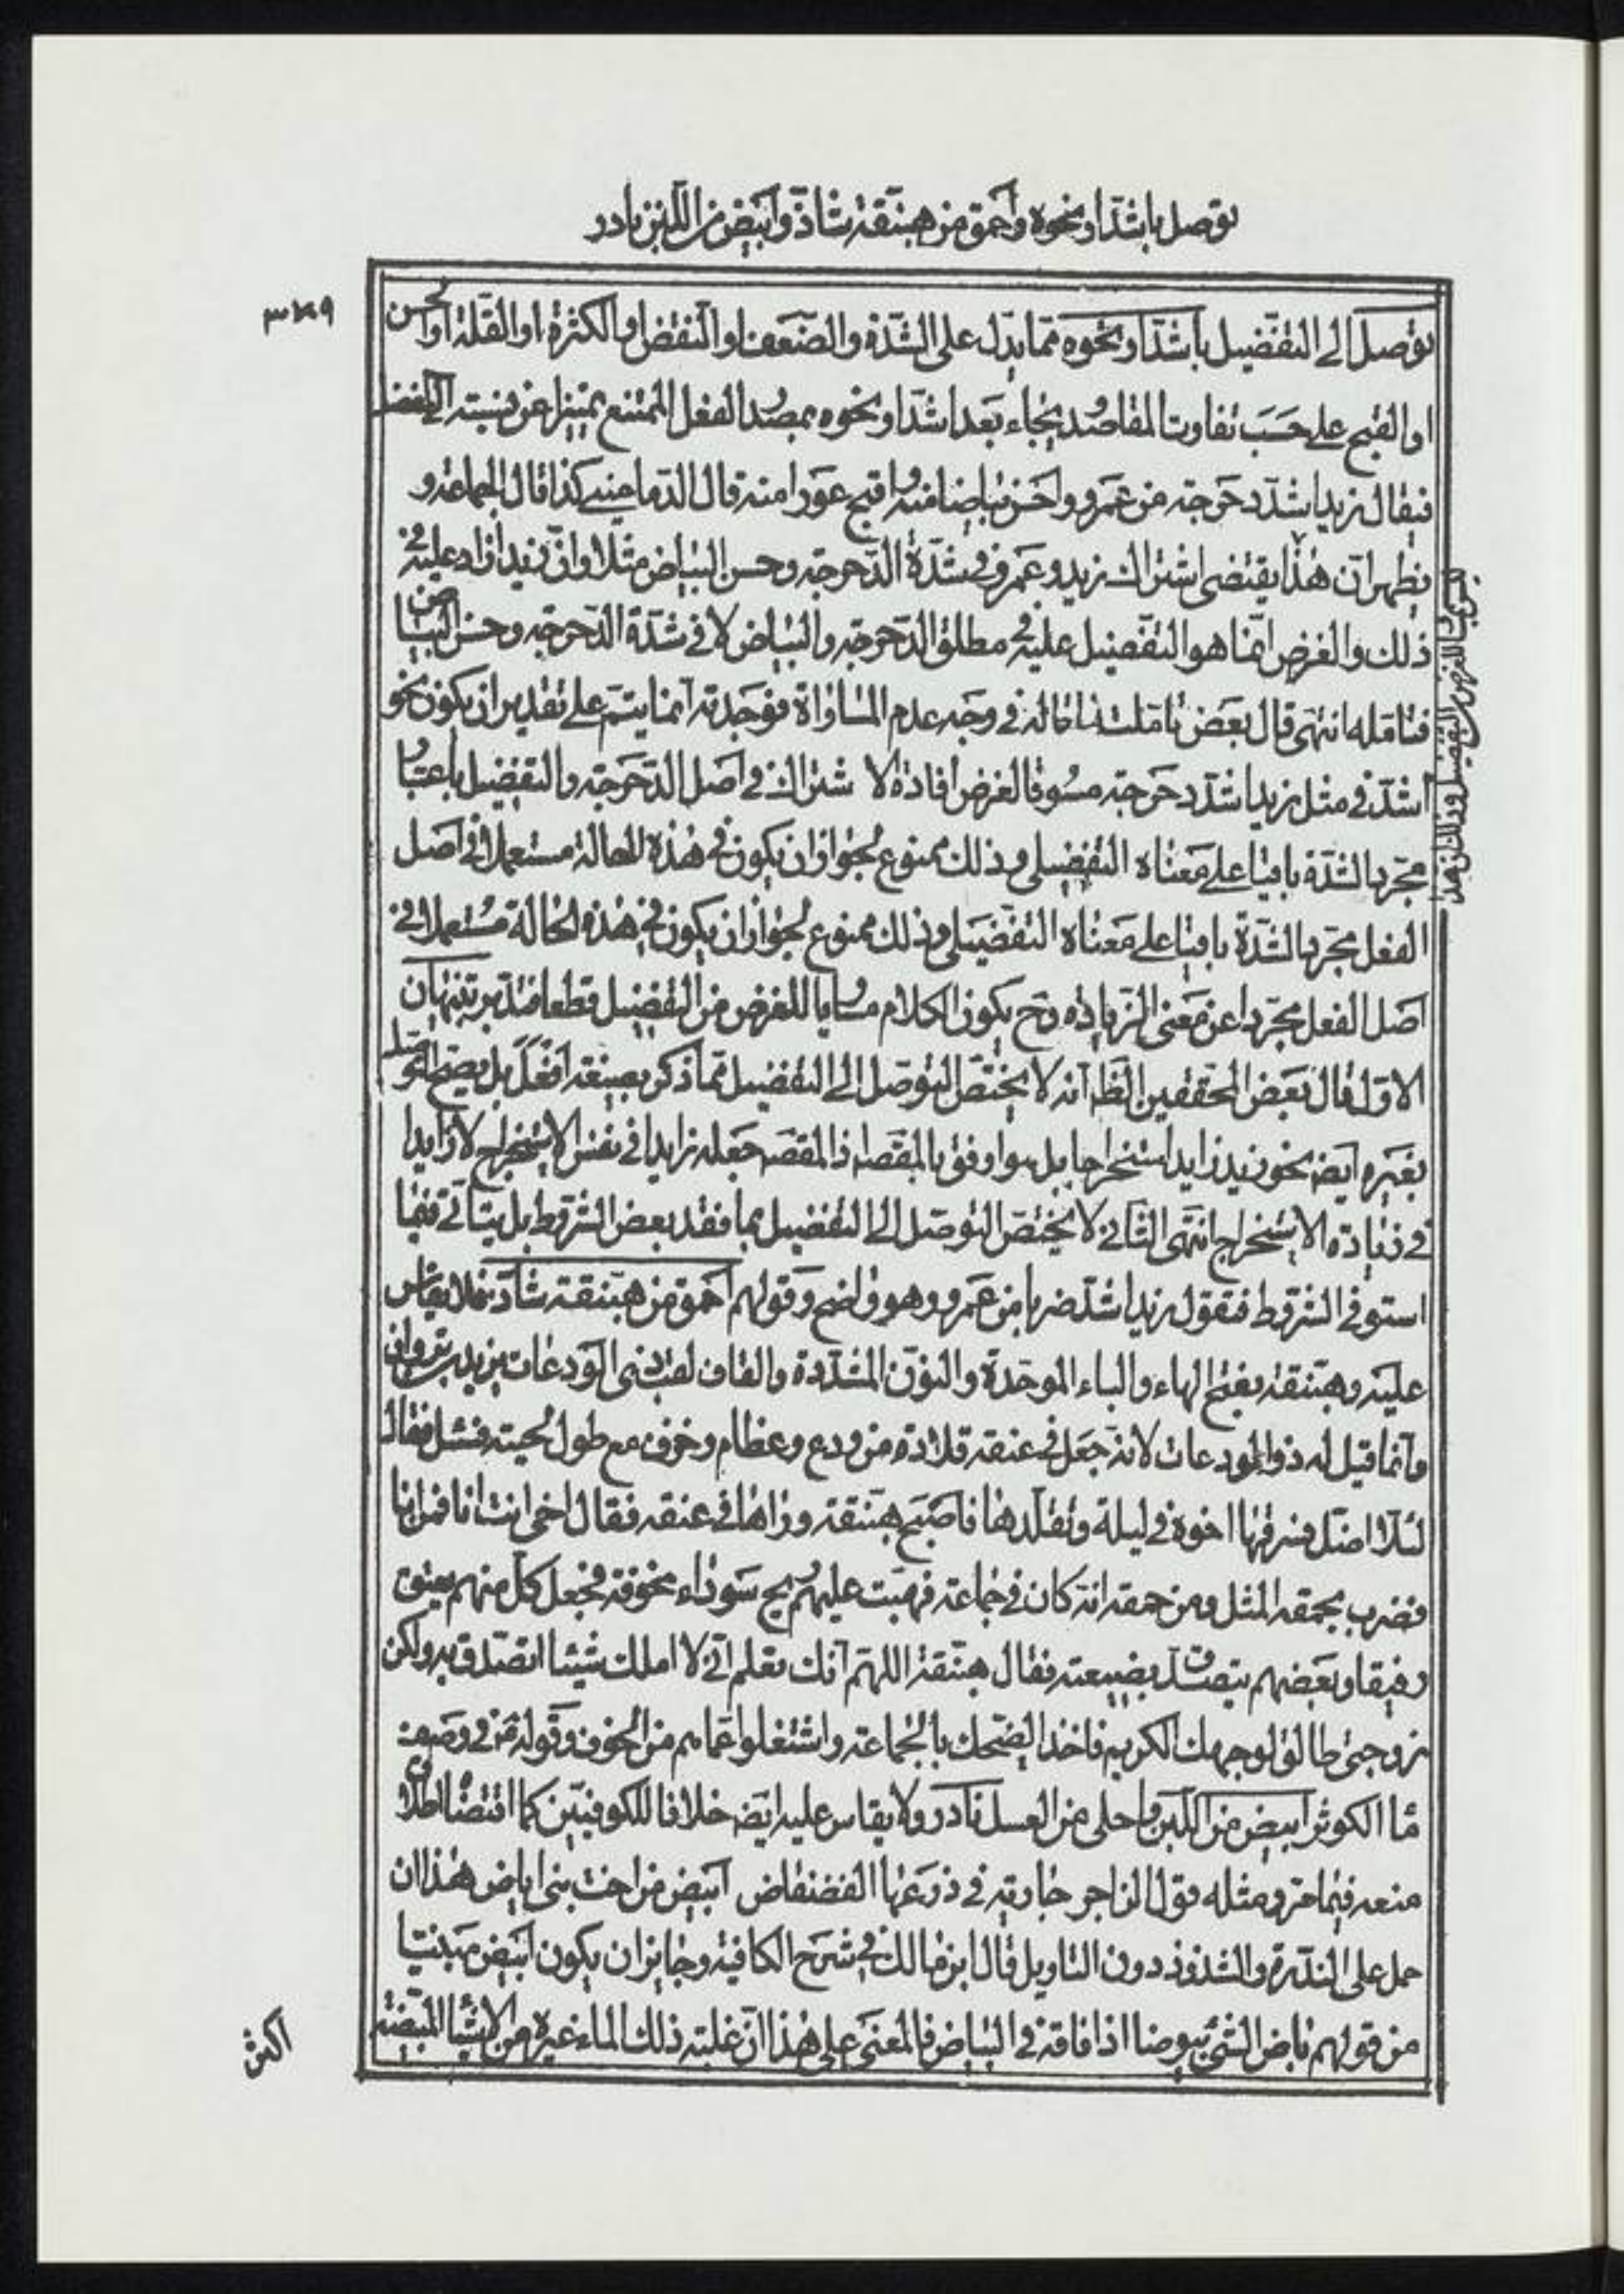 توصل باشد او نحوه واحمق من هبنقة شاذ وابيض من اللبن نادر
٣٤٩
توصل الى التفضيل باشد او نحوه مما يدل على الشدة والضعف او النقص او الكثرة او القلة او الحسن
او القبح على حسب تفاوت المقاصد يجاء بعد اشد او نحوه بمصدر الفعل الممتنع تمييزا عن نسبته الى المفضل
فيقال زيد اشد دحرجة من عمرو واحسن بياضا منه واقبح عورا منه قال الدماميني كذا قال الجماعة و
يظهر ان هذا يقتضي اشتراك زيد وعمرو في شدة الدحرجة وحسن البياض مثلا وان زيدا زاد عليه في
ذلك والغرض انما هو التفضيل عليه في مطلق الدحرجة والبياض لا في شدة الدحرجة وحسن البياض
فتامله انتهى قال بعض تاملت ما قاله في وجه عدم المساواة فوجدته انما يتم على تقدير ان يكون نحو
اشد في مثل زيد اشد دحرجة مسوقا لغرض افادة الاشتراك في اصل الدحرجة والتفضيل باعتبار
مجرد الشدة باقيا على معناه التفضيلي وذلك ممنوع لجواز ان يكون في هذه الحالة مستعملا في اصل
الفعل مجرد الشدة باقيا على معناه التفضيلي وذلك ممنوع لجواز ان يكون في هذه الحالة مستعملا في
اصل الفعل مجردا عن معنى الزيادة وح يكون الكلام مساويا للغرض من التفضيل قطعا فتدبر تنبيهان
الاول قال بعض المحققين الظ انه لا يختص التوصل الى التفضيل مما ذكر بصيغة افعل بل يصح التوصل
بغيره ايض نحو زيد زايد استخراجا بل هو اوفق بالمقص اذ المقص جعله زايدا في نفس الاستخراج لا زايدا
في زيادة الاستخراج انتهى الثاني لا يختص التوصل الى التفضيل بما فقد بعض الشروط بل يتاتى فيما
استوفى الشروط فتقول زيد اشد ضربا من عمرو وهو واضح وقولهم احمق من هبنقة شاذ فلا يقاس
عليه وهبنقة بفتح الهاء والباء الموحدة والنون المشددة والقاف لقب ذي الودعات يزيد بن ثروان
وانما قيل له ذو الودعات لانه جعل في عنقه قلادة من ودع وعظام وخزف مع طول لحيته فسئل فقال
لئلا اضل فسرقها اخوه في ليلة وتقلدها فاصبح هبنقة وراها في عنقه فقال اخي انت انا فمن انا
فضرب بحمقه المثل ومن حمقه انه كان في جماعة فهبت عليهم ريح سوداء مخوفة فجعل كل منهم يعتق
رقيقا وبعضهم يتصدق بضيعته فقال هبنقة اللهم انك تعلم اني لا املك شيئا اتصدق به ولكن
زوجتي طالق لوجهك الكريم فاخذ الضحك بالجماعة واشتغلوا عما بهم من الخوف وقوله ص في وصف
ما الكوثر ابيض من اللبن واحلى من العسل نادر ولا يقاس عليه ايض خلافا للكوفيين كما اقتضاه اطلاق
منعه فيما مر ومثله قول الراجز جارية في درعها الفضفاض ابيض من اخت بني اباض هذا ان
حمل على الندرة والشذوذ دون التاويل قال ابن مالك في شرح الكافية وجايز ان يكون ابيض مبنيا
من قولهم باض الشئ بيوضا اذا فاقه في البياض فالمعنى على هذا ان غلبة ذلك الماء غيره من الاشيا المبيضة
اكثر